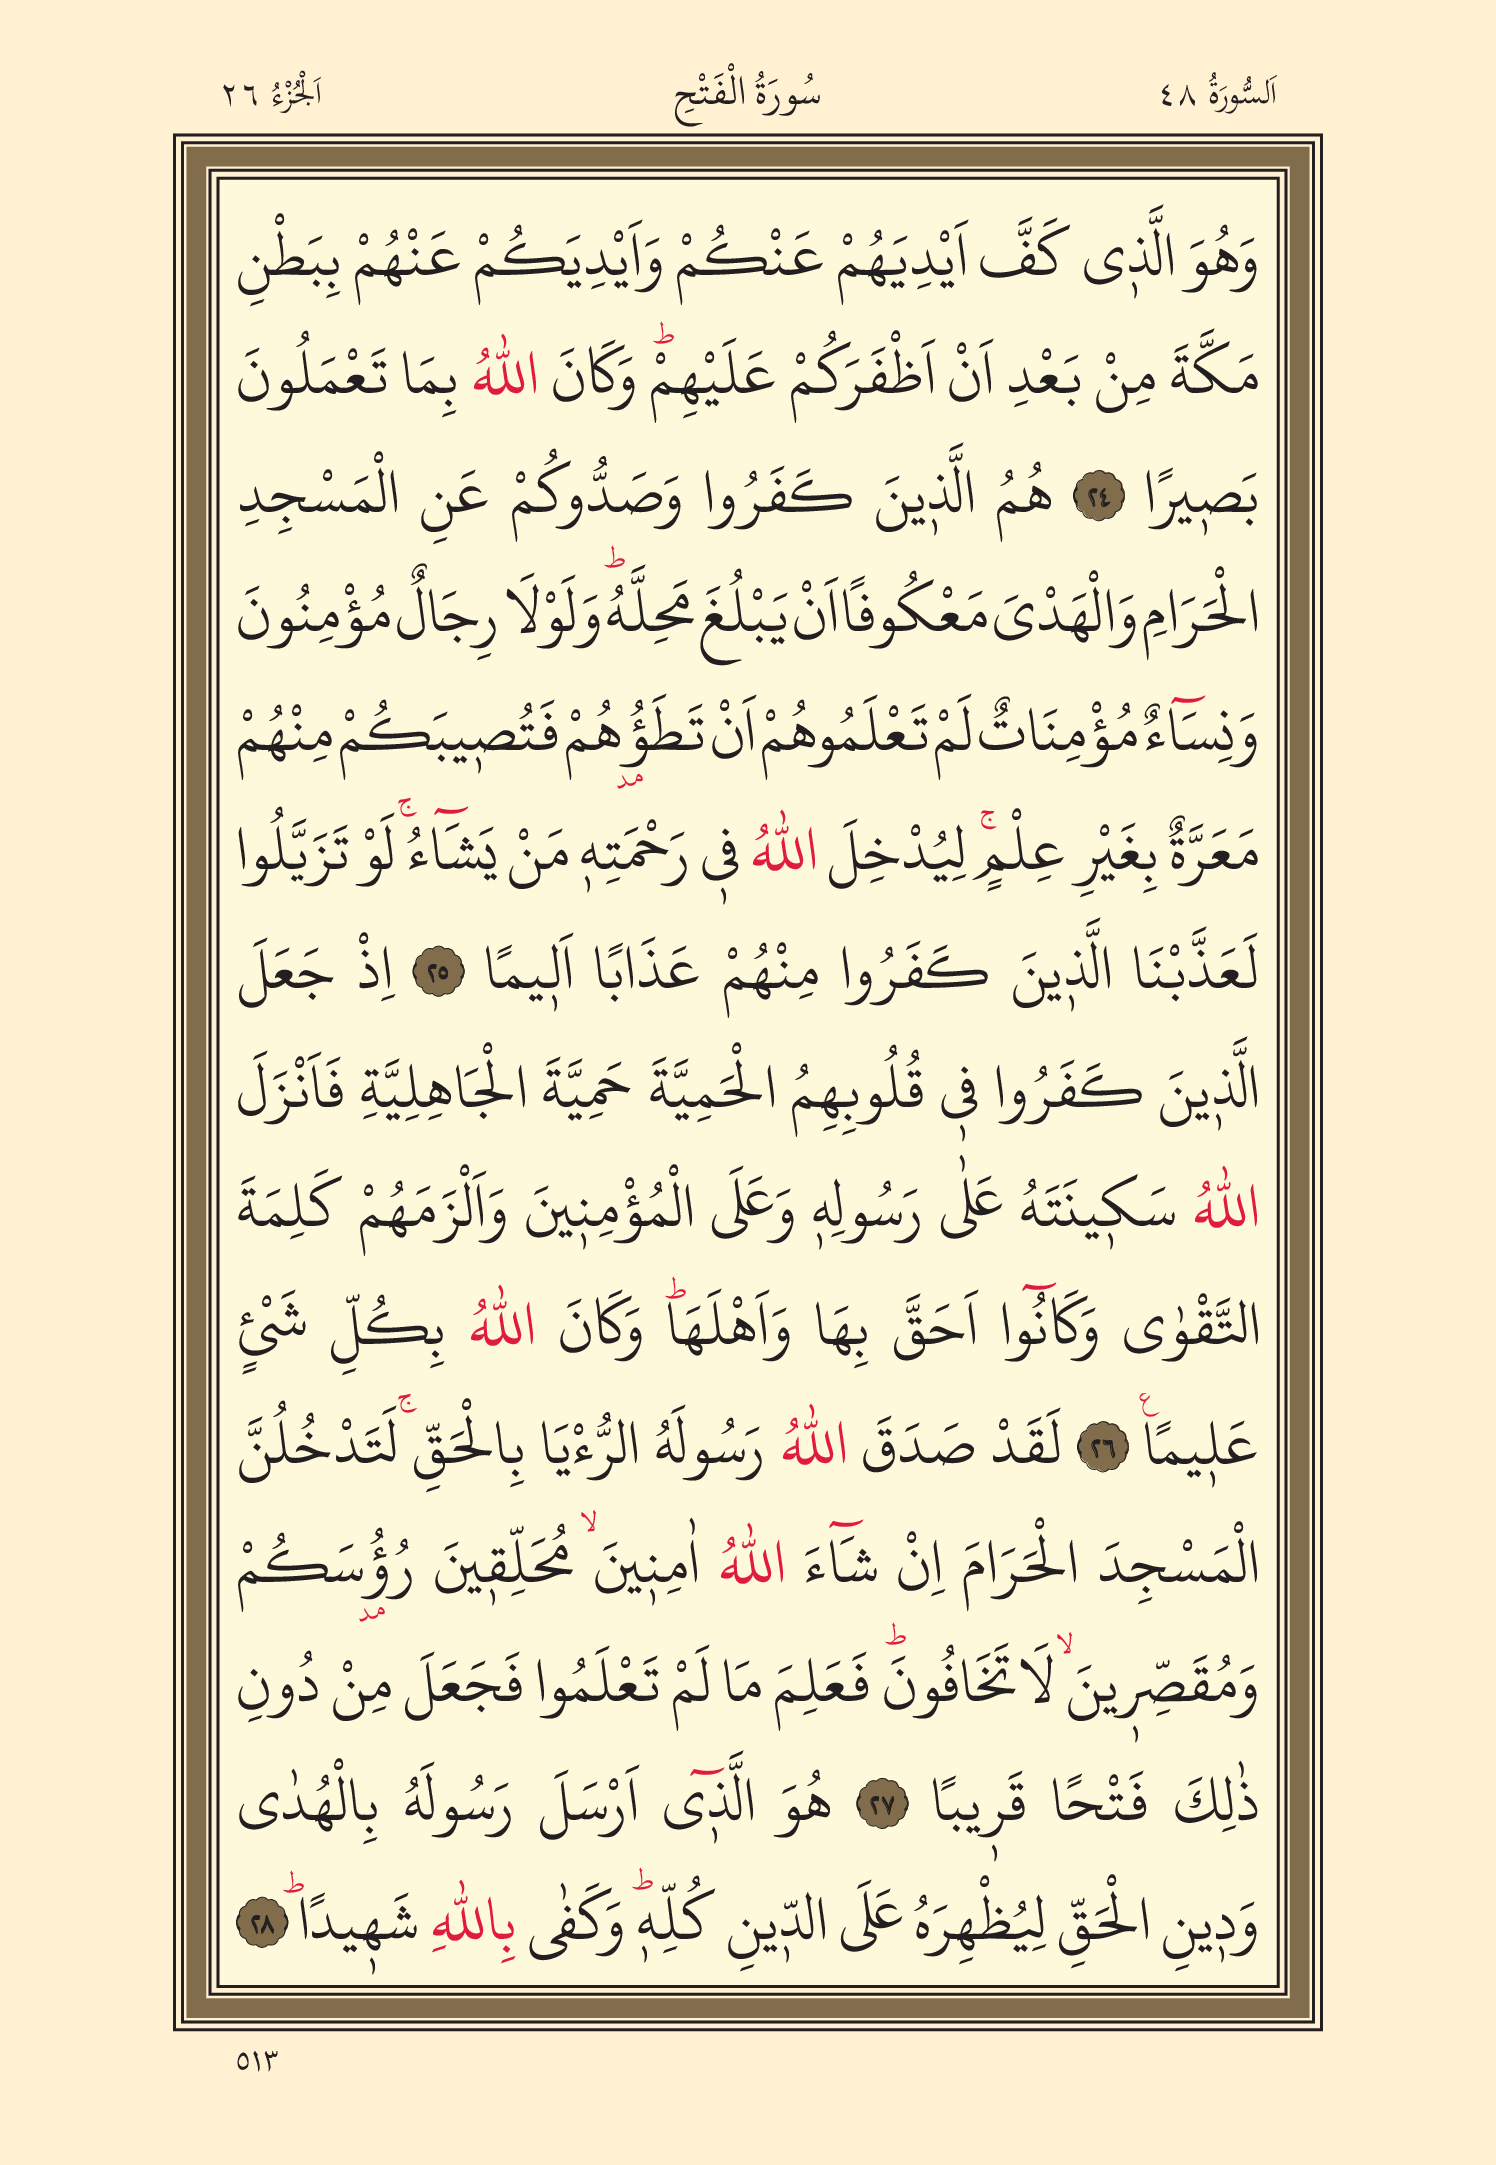 اَلسُّورَةُ ٤٨ سُورَةُ الْفَتْحِ اَلْجُزْءُ ٢٦
وَهُوَ الَّذ۪ى كَفَّ اَيْدِيَهُمْ عَنْكُمْ وَاَيْدِيَكُمْ عَنْهُمْ بِبَطْنِ
مَكَّةَ مِنْ بَعْدِ اَنْ اَظْفَرَكُمْ عَلَيْهِمْۜ وَكَانَ اللّٰهُ بِمَا تَعْمَلُونَ
بَص۪يرًا ٢٤ هُمُ الَّذ۪ينَ كَفَرُوا وَصَدُّوكُمْ عَنِ الْمَسْجِدِ
الْحَرَامِ وَالْهَدْىَ مَعْكُوفًا اَنْ يَبْلُغَ مَحِلَّهُۜ وَلَوْلَا رِجَالٌ مُؤْمِنُونَ
وَنِسَٓاءٌ مُؤْمِنَاتٌ لَمْ تَعْلَمُوهُمْ اَنْ تَطَؤُ۫هُمْ فَتُص۪يبَكُمْ مِنْهُمْ
مَعَرَّةٌ بِغَيْرِ عِلْمٍۚ لِيُدْخِلَ اللّٰهُ ف۪ى رَحْمَتِه۪ مَنْ يَشَٓاءُۚ لَوْ تَزَيَّلُوا
لَعَذَّبْنَا الَّذ۪ينَ كَفَرُوا مِنْهُمْ عَذَابًا اَل۪يمًا ٢٥ اِذْ جَعَلَ
الَّذ۪ينَ كَفَرُوا ف۪ى قُلُوبِهِمُ الْحَمِيَّةَ حَمِيَّةَ الْجَاهِلِيَّةِ فَاَنْزَلَ
اللّٰهُ سَك۪ينَتَهُ عَلٰى رَسُولِه۪ وَعَلَى الْمُؤْمِن۪ينَ وَاَلْزَمَهُمْ كَلِمَةَ
التَّقْوٰى وَكَانُٓوا اَحَقَّ بِهَا وَاَهْلَهَاۜ وَكَانَ اللّٰهُ بِكُلِّ شَىْءٍ
عَل۪يمًا۟ ٢٦ لَقَدْ صَدَقَ اللّٰهُ رَسُولَهُ الرُّءْيَا بِالْحَقِّۚ لَتَدْخُلُنَّ
الْمَسْجِدَ الْحَرَامَ اِنْ شَٓاءَ اللّٰهُ اٰمِن۪ينَۙ مُحَلِّق۪ينَ رُؤُ۫سَكُمْ
وَمُقَصِّر۪ينَۙ لَا تَخَافُونَۜ فَعَلِمَ مَا لَمْ تَعْلَمُوا فَجَعَلَ مِنْ دُونِ
ذٰلِكَ فَتْحًا قَر۪يبًا ٢٧ هُوَ الَّذ۪ٓى اَرْسَلَ رَسُولَهُ بِالْهُدٰى
وَد۪ينِ الْحَقِّ لِيُظْهِرَهُ عَلَى الدّ۪ينِ كُلِّه۪ۜ وَكَفٰى بِاللّٰهِ شَه۪يدًاۜ ٢٨
٥١٣